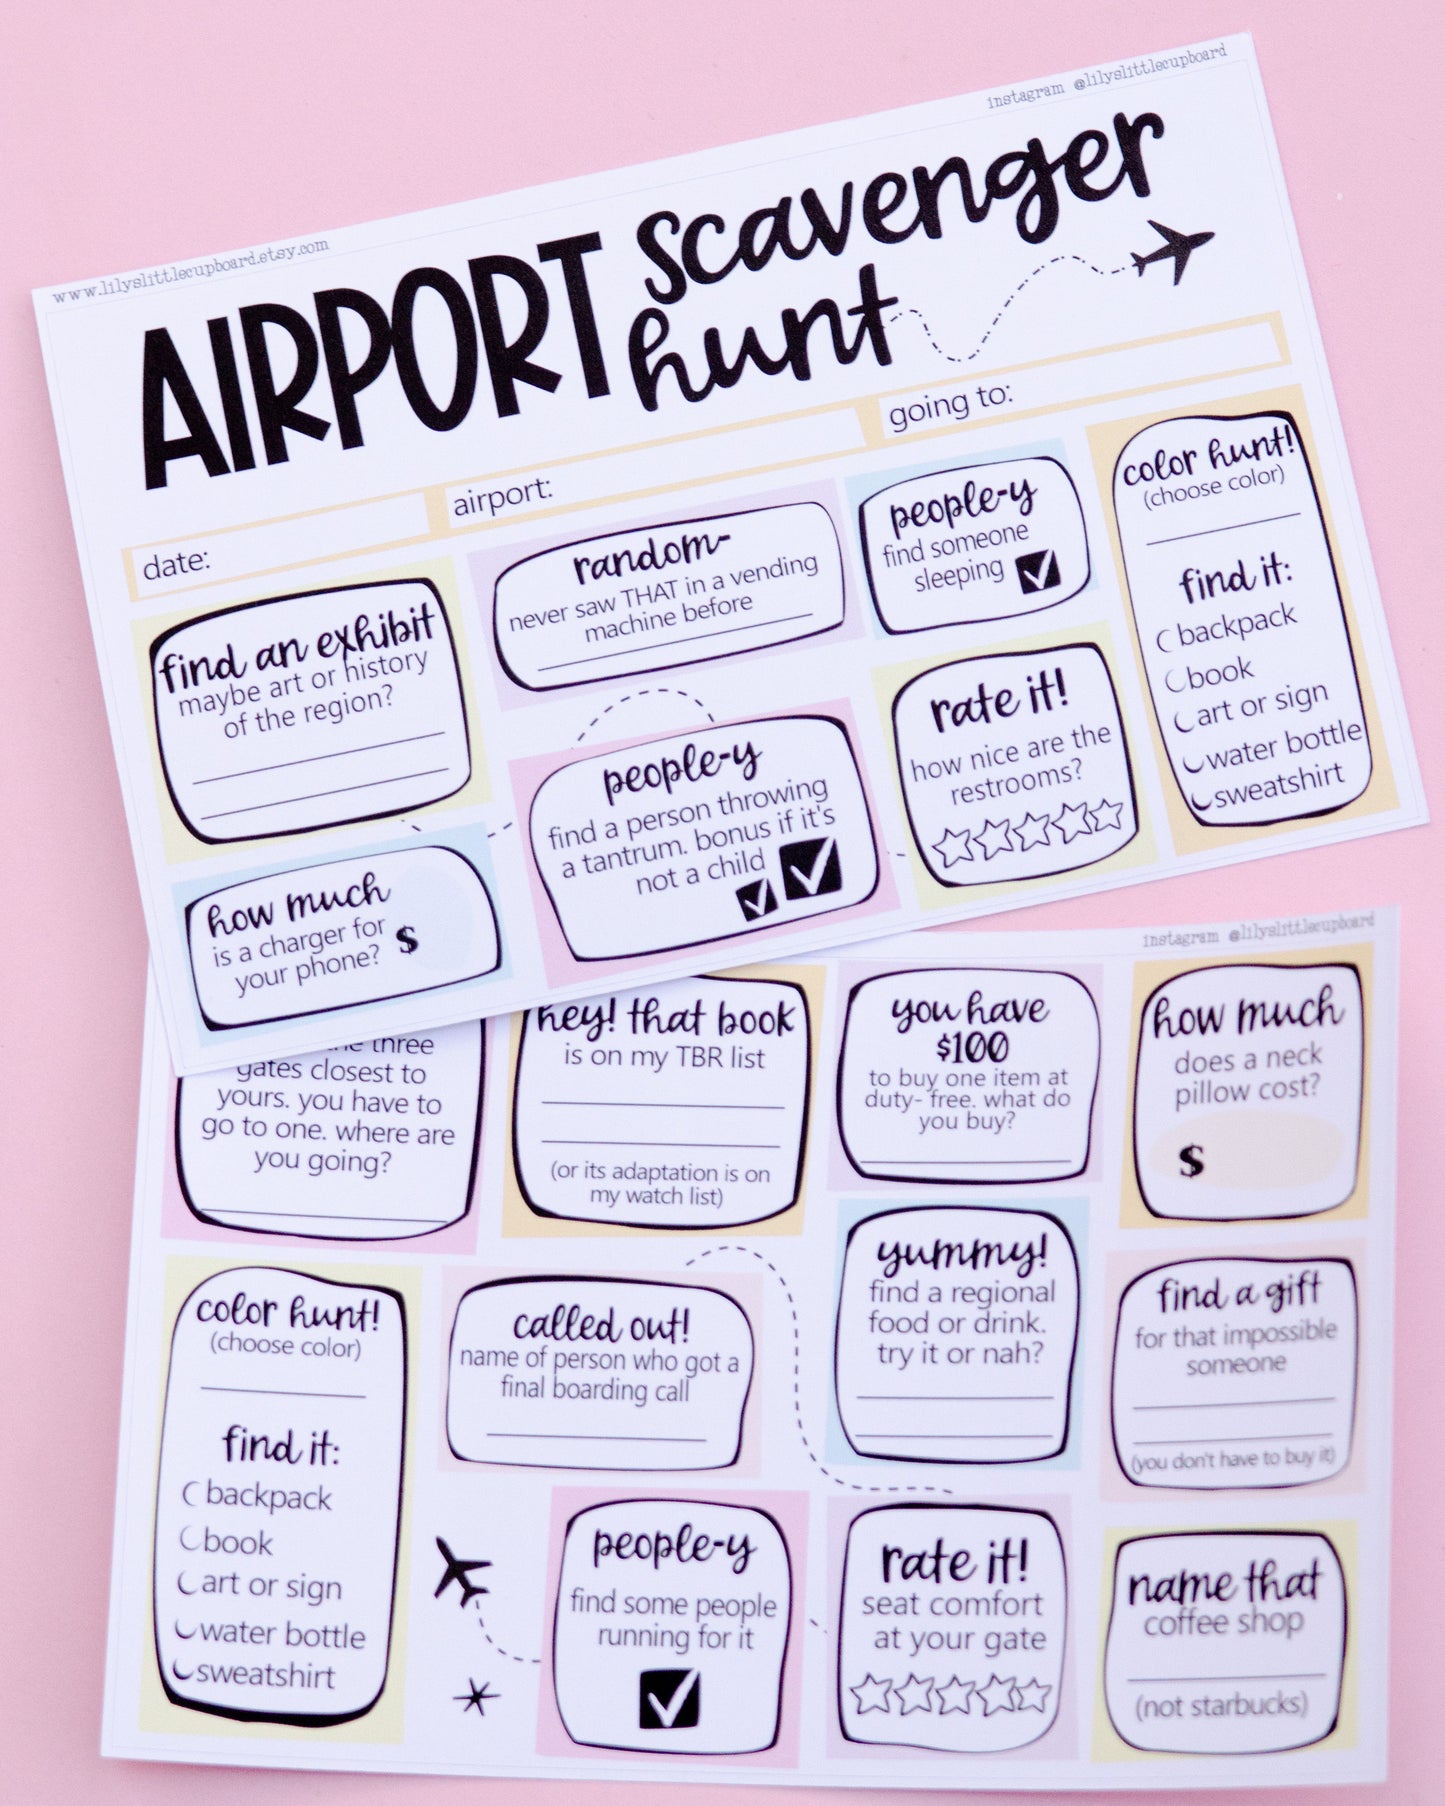 www.lilyslittlecupboard.etsy.com
instagram @lilyslittlecupboard
AIRPORT scavenger
hunt
date:
airport:
going to:
find an exhibit
maybe art or history
of the region?
random-
never saw THAT in a vending
machine before
people-y
find someone
sleeping
color hunt!
(choose color)
find it:
backpack
book
art or sign
water bottle
sweatshirt
how much
is a charger for
your phone?
$
people-y
find a person throwing
a tantrum. bonus if it's
not a child
rate it!
how nice are the
restrooms?
instagram @lilyslittlecupboard
three
gates closest to
yours. you have to
go to one. where are
you going?
hey! that book
is on my TBR list
(or its adaptation is on
my watch list)
you have
$100
to buy one item at
duty- free. what do
you buy?
how much
does a neck
pillow cost?
$
color hunt!
(choose color)
find it:
backpack
book
art or sign
water bottle
sweatshirt
called out!
name of person who got a
final boarding call
yummy!
find a regional
food or drink.
try it or nah?
find a gift
for that impossible
someone
(you don't have to buy it)
people-y
find some people
running for it
rate it!
seat comfort
at your gate
name that
coffee shop
(not starbucks)